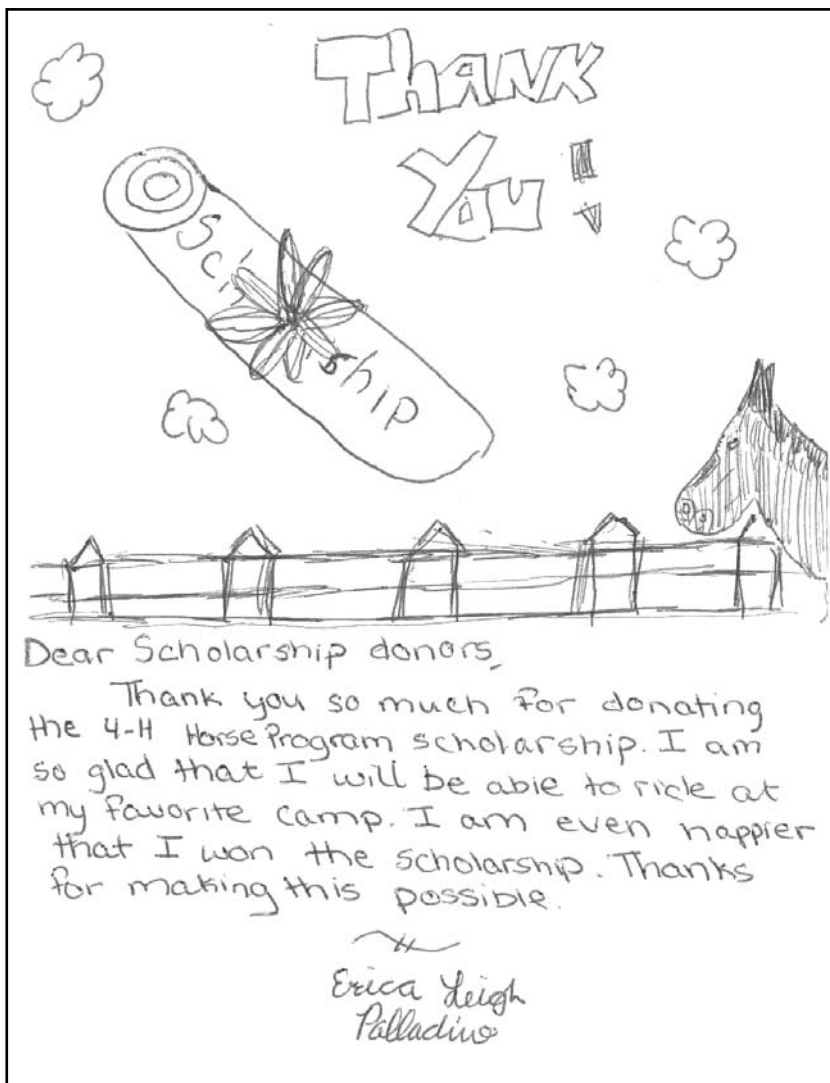 THANK
YOU!
Sch ship
Dear Scholarship donors,
Thank you so much for donating
the 4-H Horse Program scholarship. I am
so glad that I will be able to ride at
my favorite camp. I am even happier
that I won the scholarship. Thanks
for making this possible.
Erica Leigh
Palladino